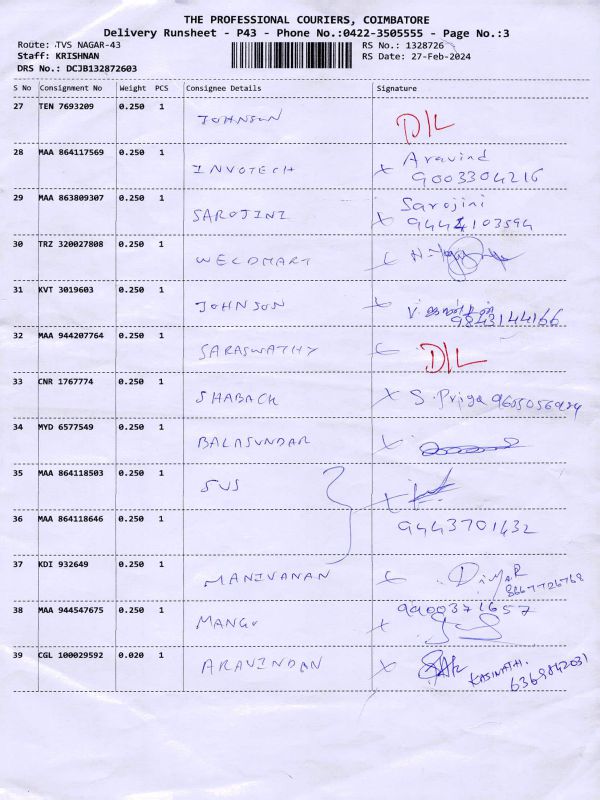 THE PROFESSIONAL COURIERS, COIMBATORE
Delivery Runsheet - P43 - Phone No.:0422-3505555 - Page No.:3
Route: TVS NAGAR-43 RS No.: 1328726
Staff: KRISHNAN RS Date: 27-Feb-2024
DRS No.: DCJB132872603
S No Consignment No Weight PCS Consignee Details Signature
27 TEN 7693209 0.250 1 JOHNSON D/L
28 MAA 864117569 0.250 1 INVOTECH x Aravind
9003304216
29 MAA 863809307 0.250 1 SAROJINI x Sarojini
9444103594
30 TRZ 320027808 0.250 1 WELDMART
31 KVT 3019603 0.250 1 JOHNSON x V.
9843144166
32 MAA 944207764 0.250 1 SARASWATHY D/L
33 CNR 1767774 0.250 1 SHABACK x S. Priya
34 MYD 6577549 0.250 1 BALASUNDAR x
35 MAA 864118503 0.250 1 SVS x
36 MAA 864118646 0.250 1 9443701432
37 KDI 932649 0.250 1 MANIVANAN x
38 MAA 944547675 0.250 1 x 9900371657
39 CGL 100029592 0.020 1 ARAVINDAN x KASINATH.
6369842031